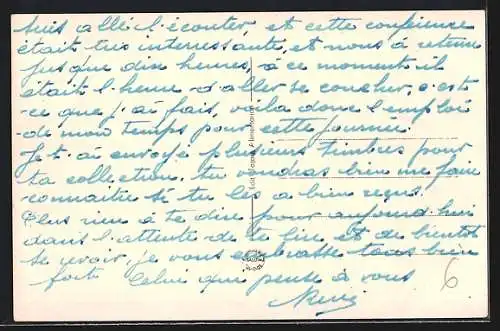 suis allé l'écouter, et cette conférence
était très interressante, et nous à retenu
jusque dix heures, à ce moment il
était l'heure d'aller se coucher, c'est
ce que j'ai fais, voila donc l'emploi
de mon temps pour cette journée.
Je t'ai envoyé plusieurs timbres pour
ta collection, tu voudras bien me faire
connaitre si tu les a bien reçus.
Plus rien à te dire pour aujourd'hui
dans l'attente de te lire et de bientôt
te revoir, je vous embrasse tous bien
fort. Celui qui pense à vous
6